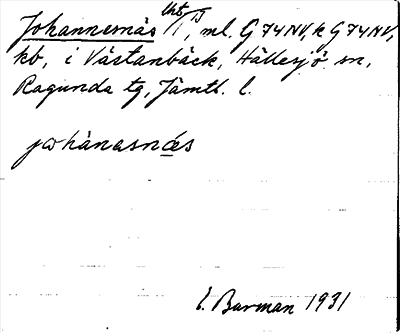 Johannesnäs, ml. G 74 NV, k G 74 NV,
kb, i Västanbäck, Hällesjö sn,
Ragunda tg, Jämtl. l.
johànasnä́s
E. Barman 1931